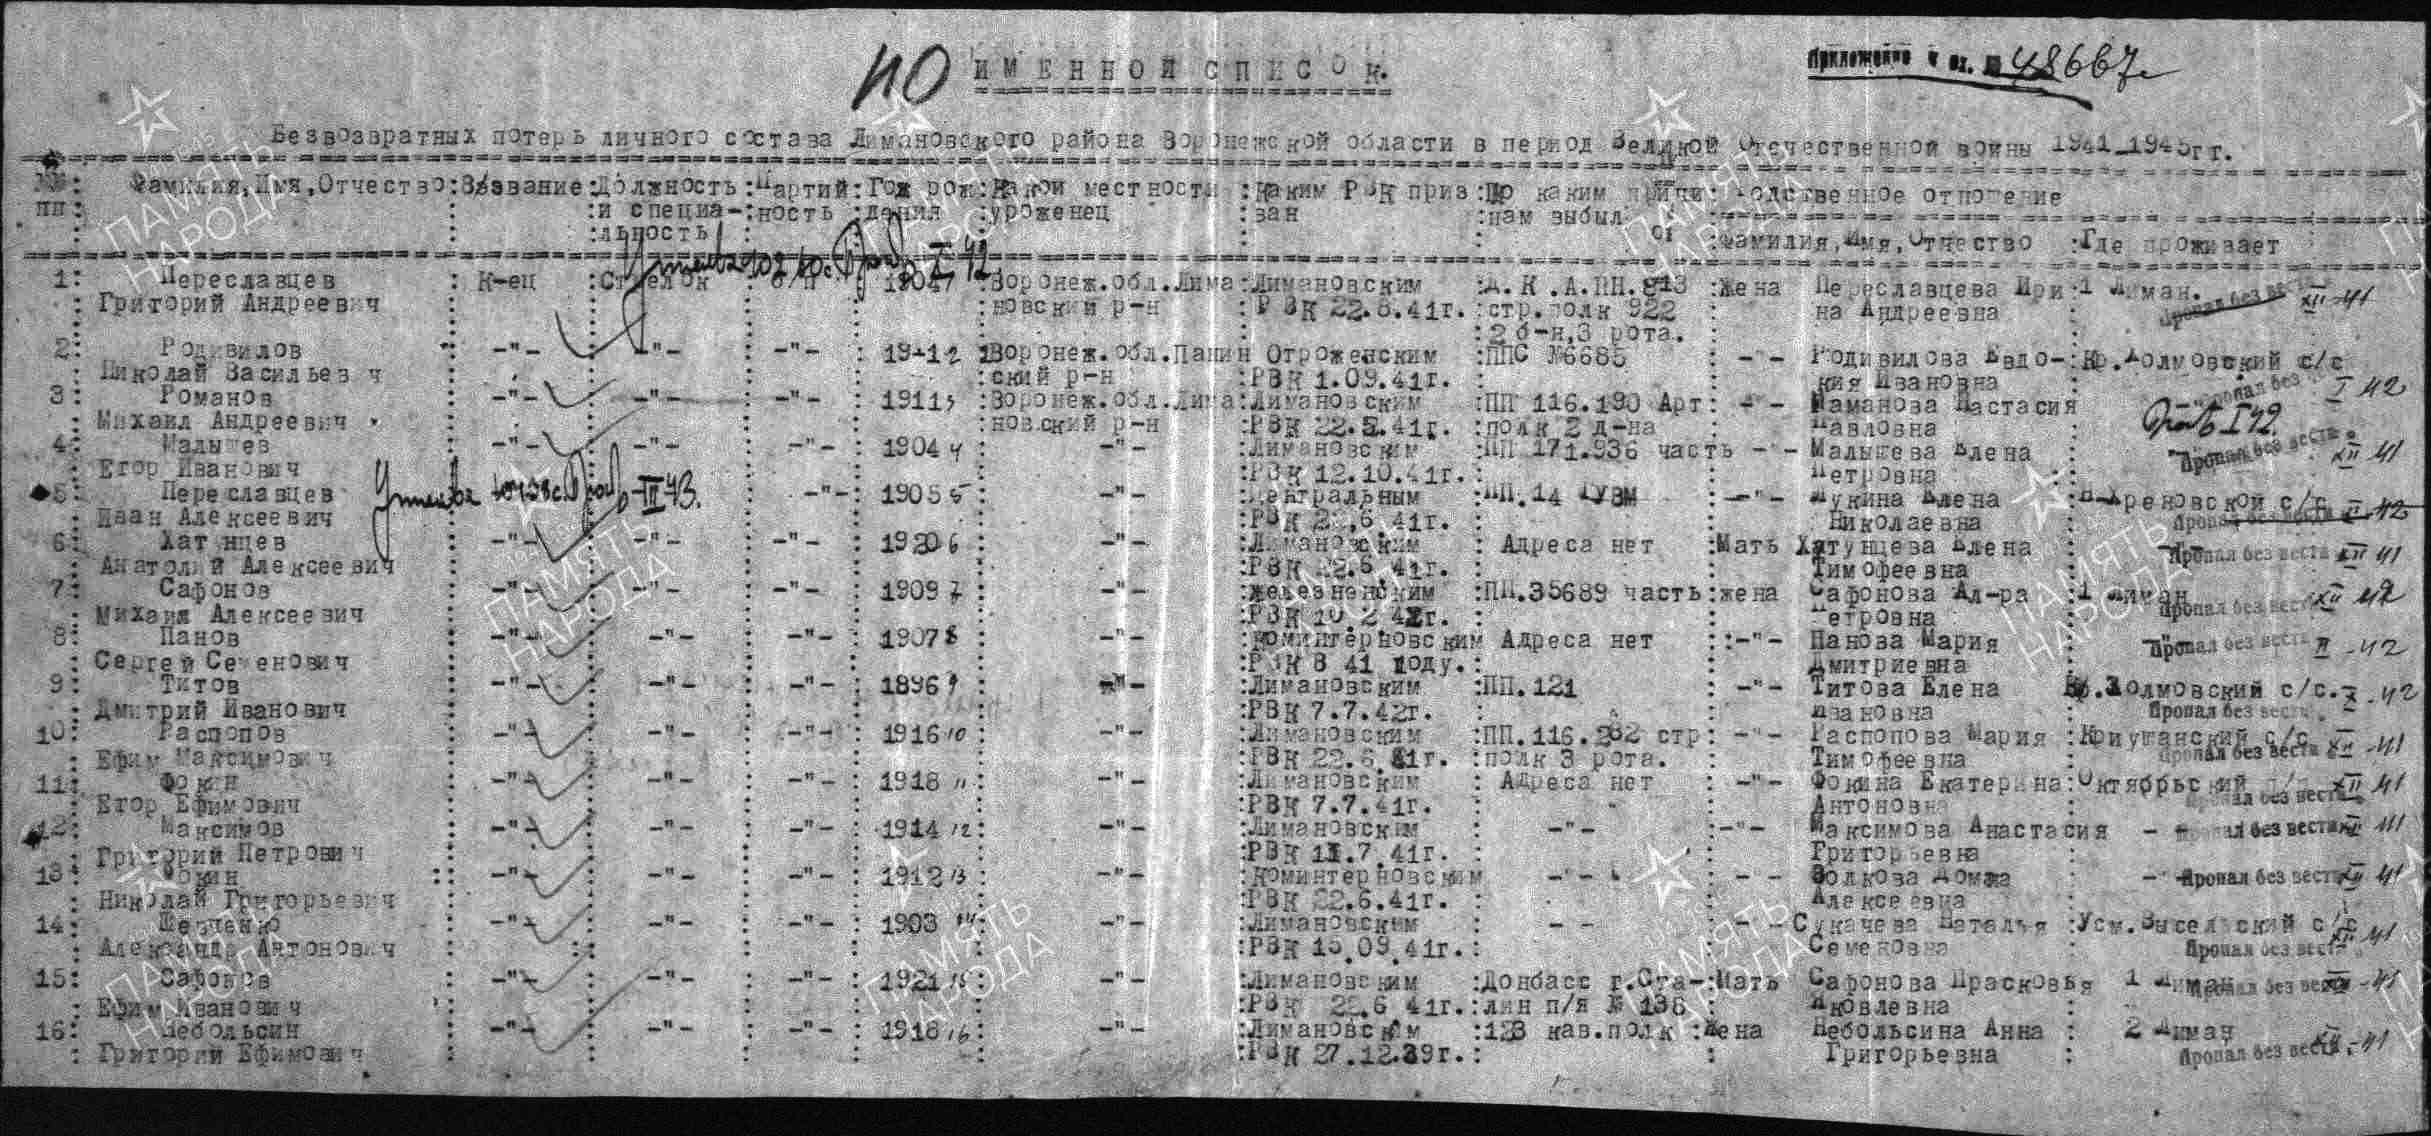 ИМЕННОЙ СПИСОК.
Приложение к вх. № 48667с
Безвозвратных потерь личного состава Лимановского района Воронежской области в период Великой Отечественной войны 1941-1945гг.
№№ пп : Фамилия, Имя, Отчество : Звзвание : Должность и специальность : Партийность : Год рождения : Какой местности уроженец : Каким РВК призван : По каким причинам выбыл : Родственное отношение
Фамилия, Имя, Отчество : Где проживает
1: Переславцев : К-ец : Стрелок : б/п : 1904 : Воронеж.обл.Лима : Лимановским : Д.К.А.ПН.813 : Жена Переславцева Ири : 1 Лиман.
Григорий Андреевич : новский р-н : РВК 22.6.41г. : стр.полк 922 : на Андреевна : Пропал без вести XII-41
: 2 б-н,3 рота.
2: Родивилов -"- -"- -"- 1912 Воронеж.обл.Панин Отроженским : ППС №6685 -"- Родивилова Евдо- : Кр.Холмовский с/с
Николай Васильев ч : ский р-н : РВК 1.09.41г. : кия Ивановна : Пропал без I 42
3: Романов -"- -"- -"- 1911 : Воронеж.обл.Лима : Лимановским : ПП 116.190 Арт : - - Маманова Настасия
Михаил Андреевич : новский р-н : РВК 22.5.41г. : полк 2 д-на : Павловна
4: Малышев -"- -"- -"- 1904 4 -"- : Лимановским : ПП 171.936 часть - - Малышева Елена : Пропал без вести XII 41
Егор Иванович : РВК 12.10.41г. : Петровна
5 Переславцев -"- 1905 5 -"- : Центральным : ПП.14 ТУЗМ -"- Лукина Елена : Н-Хреновской с/с
Иван Алексеевич : Николаевна : Пропал без вести 42
6: Хат нцев -"- -"- -"- 1920 6 -"- : Лимановским Адреса нет : Мать Хатунцева Елена : Пропал без вести XII 41
Анатолий Алексеевич : РВК 22.6 41г. : Тимофеевна
7: Сафонов -"- -"- -"- 1909 7 -"- : железненским : ПП.35689 часть : жена Сафонова Ал-ра : 1 Лиман
Михаил Алексеевич : РВК 10.2 42г. : Петровна : Пропал без вести XII 42
8: Панов -"- -"- -"- 1907 8 -"- : Коминтерновским Адреса нет : -"- Панова Мария : Пропал без вести II-42
Сергей Семенович : РВК 8 41 году. : Дмитриевна
9: Титов -"- -"- -"- 1896 9 -"- : Лимановским : ПП.121 -"- Титова Елена Кр.Холмовский с/с. X-42
Дмитрий Иванович : РВК 7.7.42г. : Ивановна : Пропал без вести
10: Распопов -"- -"- -"- 1916 10 -"- : Лимановским : ПП.116.282 стр : -"- Распопова Мария : Криушанский с/с
Ефим Максимович : РВК 22.6.41г. : полк 3 рота. : Тимофеевна : Пропал без вести XII-41
11: Фокин -"- -"- -"- 1918 11 -"- : Лимановским : Адреса нет -"- Фокина Екатерина : Октябрьский XII 41
Егор Ефимович : РВК 7.7.41г. : Антоновна : Пропал без вести
12: Максимов -"- -"- -"- 1914 12 -"- : Лимановским -"- -"- Максимова Анастасия - Пропал без вести XII 41
Григорий Петрович : РВК 11.7.41г. : Григорьевна
13: Фокин -"- -"- -"- 1912 13 -"- : Коминтерновским -"- - - Волкова Домна - Пропал без вести XII 41
Николай Григорьевич : РВК 22.6.41г. : Алексеевна
14: Шевченко -"- -"- -"- 1903 14 -"- : Лимановским - - - Сукачева Наталья : Усм.Высельский с/с
Александр Антонович : РВК 15.09.41г. : Семеновна : Пропал без вести XII 41
15: Сафонов -"- -"- -"- 1921 15 -"- : Лимановским : Донбасс г.Ста- : Мать Сафонова Прасковья 1 Лиман
Ефим Иванович : РВК 22.6 41г. : лин п/я № 136 : Яковлевна : Пропал без вести XII-41
16: Небольсин -"- -"- -"- 1918 16 -"- : Лимановским : 123 кав.полк : Жена Небольсина Анна : 2 Лиман
Григорий Ефимович : РВК 27.12.39г. : Григорьевна : Пропал без вести XII-41
ПАМЯТЬ НАРОДА